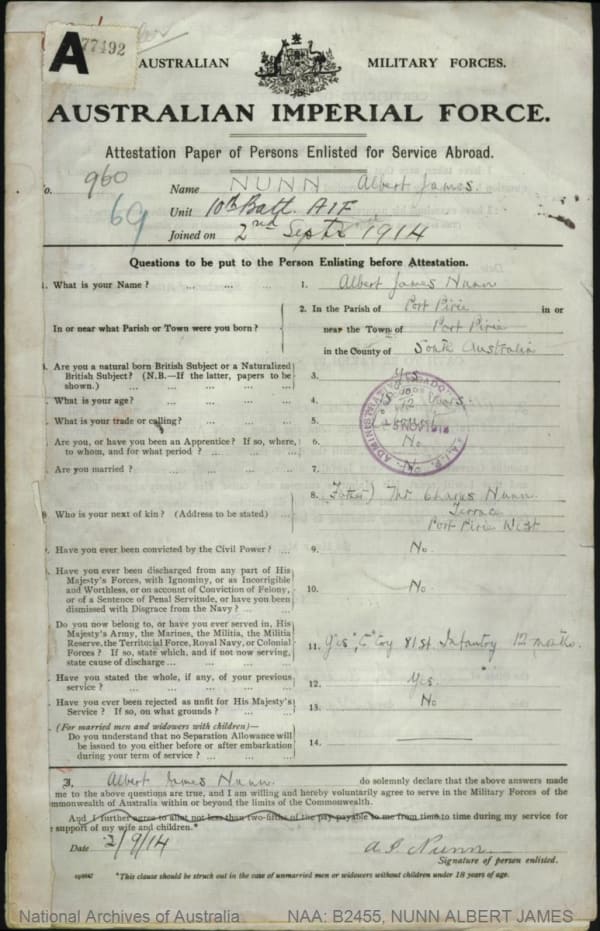 A
77492
AUSTRALIAN MILITARY FORCES.
AUSTRALIAN IMPERIAL FORCE.
Attestation Paper of Persons Enlisted for Service Abroad.
o. 960 Name NUNN Albert James.
69 Unit 10th Batt. AIF
Joined on 2nd Sept 1914
Questions to be put to the Person Enlisting before Attestation.
1. What is your Name? ... ... ... 1. Albert James Nunn
2. In the Parish of Port Pirie in or
In or near what Parish or Town were you born? near the Town of Port Pirie
in the County of South Australia
Are you a natural born British Subject or a Naturalized
British Subject? (N.B.—If the latter, papers to be 3. Yes
shown.) ... ... ... ...
What is your age? ... ... ... 4.
What is your trade or calling? ... ... 5.
Are you, or have you been an Apprentice? If so, where, 6. No
to whom, and for what period? ... ... ...
Are you married? ... ... ... 7.
8. (Father) Mr Charles Nunn
Who is your next of kin? (Address to be stated) ... Terrace
Port Pirie West
Have you ever been convicted by the Civil Power? ... 9. No
Have you ever been discharged from any part of His
Majesty's Forces, with Ignominy, or as Incorrigible
and Worthless, or on account of Conviction of Felony, 10. No
or of a Sentence of Penal Servitude, or have you been
dismissed with Disgrace from the Navy? ... ...
Do you now belong to, or have you ever served in, His
Majesty's Army, the Marines, the Militia, the Militia
Reserve, the Territorial Force, Royal Navy, or Colonial 11. Yes, "C" Coy 81st Infantry 12 months.
Forces? If so, state which, and if not now serving,
state cause of discharge... ... ... ...
Have you stated the whole, if any, of your previous 12. Yes.
service? ... ... ... ...
Have you ever been rejected as unfit for His Majesty's 13. No
Service? If so, on what grounds? ... ...
(For married men and widowers with children)—
Do you understand that no Separation Allowance will
be issued to you either before or after embarkation 14.
during your term of service? ... ... ...
I, Albert James Nunn do solemnly declare that the above answers made
me to the above questions are true, and I am willing and hereby voluntarily agree to serve in the Military Forces of the
mmonwealth of Australia within or beyond the limits of the Commonwealth.
And I further agree to allot not less than two-fifths of the pay payable to me from time to time during my service for
support of my wife and children.*
Date 2/9/14 A J Nunn
Signature of person enlisted.
*This clause should be struck out in the case of unmarried men or widowers without children under 18 years of age.
National Archives of Australia NAA: B2455, NUNN ALBERT JAMES